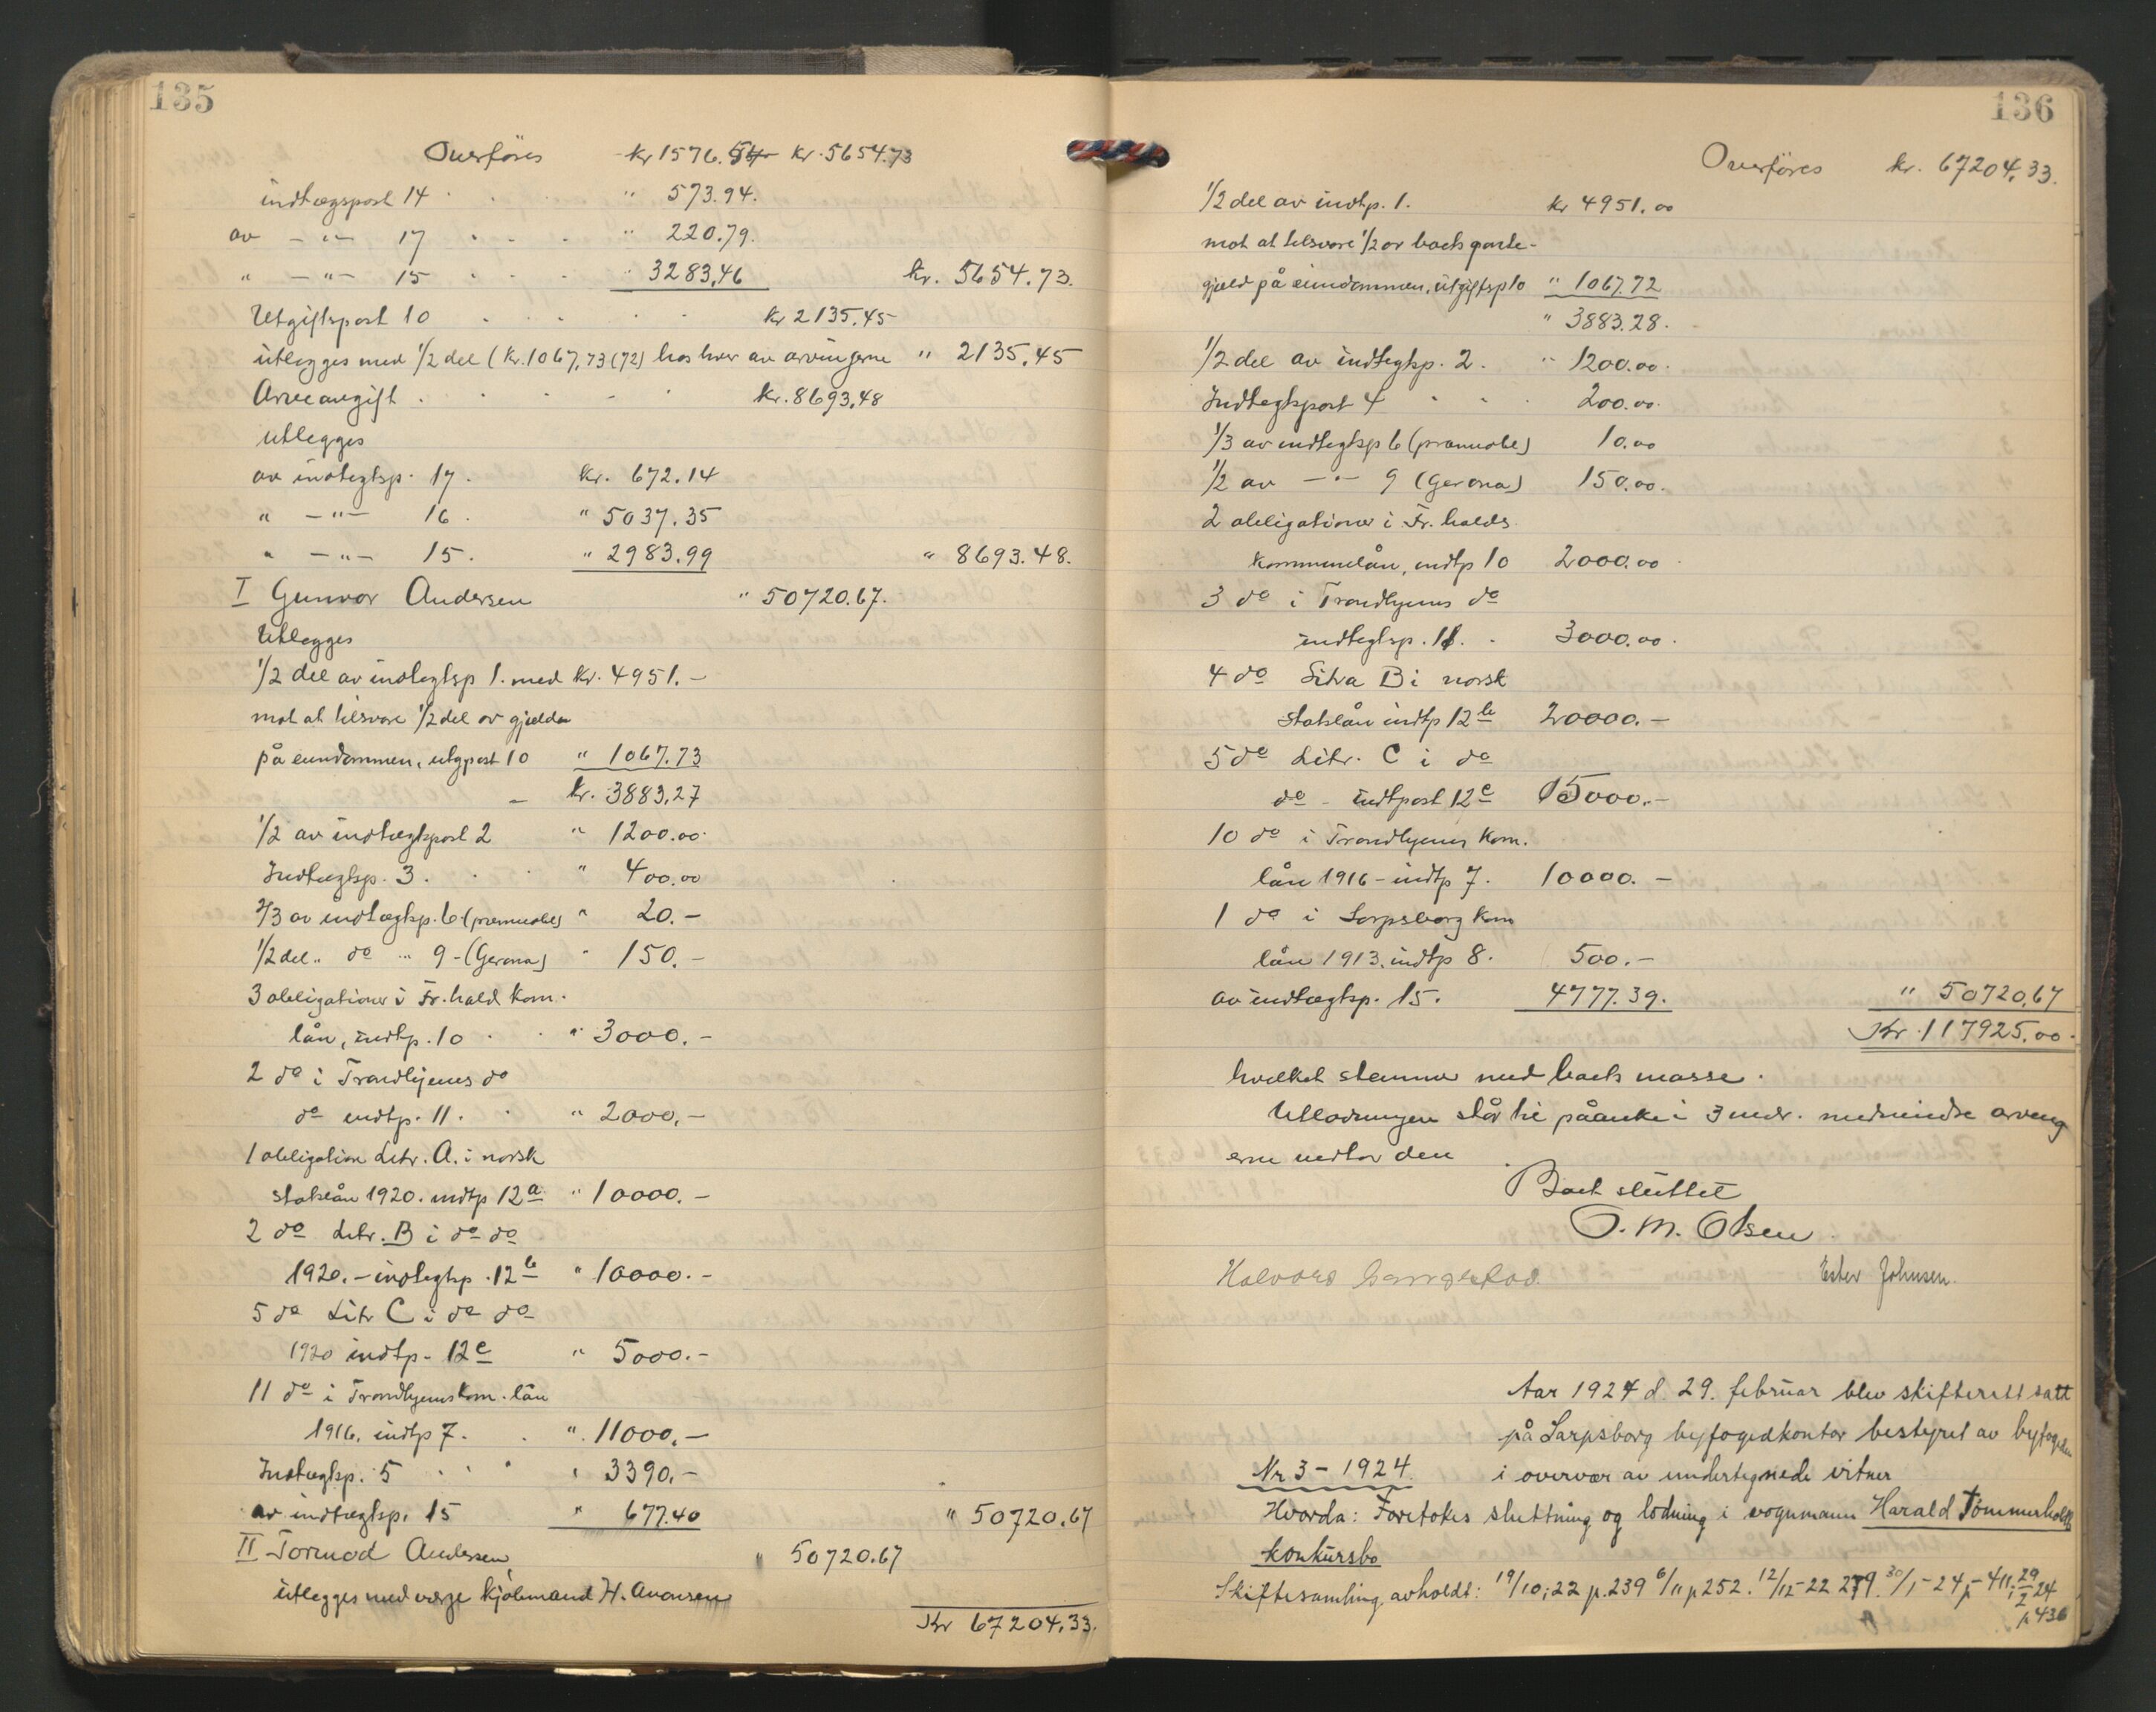 135
Overføres kr 1576.54 kr. 5654.73
indtægspost 14 " 573.94.
av - " - 17 " 220.79.
" - " - 15 " 3283,46 kr. 5654.73.
Utgiftspost 10 kr 2135.45
utlegges med 1/2 del (kr. 1067,73 (72) hos hver av arvingerne " 2135.45
Arveavgift kr. 8693,48
utlegges
av indtegtsp. 17. kr. 672.14
" - " - 16. " 5037.35
" - " - 15. " 2983.99 " 8693.48.
I Gunvor Andersen " 50720.67.
Utlegges
1/2 del av indtegtsp 1. med kr. 4951.-
mot at tilsvare 1/2 del av gjelden
på eiendommen, utgpost 10 " 1067.73
- kr. 3883,27
1/2 av indtægtspost 2 " 1200.00.
Indtægtsp. 3. " 400.00
2/3 av indtægtsp. 6 (præmieobl) " 20.-
1/2 del " do " 9 - (Gerona) " 150.-
3 obligationer i Fr.hald kom.
lån, indtp. 10 " 3000.-
2 do i Trondhjems do
do indtp. 11. " 2000,-
1 obligation Litr. A. i norsk
statslån 1920. indtp 12a " 10000.-
2 do Litr. B i do do
1920.- indtegtsp. 12b " 10000.-
5 do Litr C i do do
1920 indtp. 12c " 5000.-
11 do i Trondhjems kom. lån
1916. indtp 7. " 11000,-
Indtægtsp. 5 " 3390,-
av indtægtsp. 15 " 677.40 " 50720,67
II Tormod Andersen " 50720.67
utlegges med værge kjøbmand H.
Kr 67204,33.
136
Overføres kr. 67204,33.
1/2 del av indtp. 1. kr 4951.00
mot at tilsvare 1/2 av boets pante-
gjæld på eiendommen, utgiftsp 10 " 1067.72
" 3883.28.
1/2 del av indtegtsp. 2. " 1200.00.
Indtegtspost 4 200.00.
1/3 av indtegtsp 6 (præmieobl) 10.00
1/2 av - " - 9 (Gerona) 150.00.
2 obligationer i Fr. halds
kommunelån, indtp 10 2000.00
3 do i Trondhjems do
indtegtsp. 11. 3000.00.
4 do Litra B i norsk
statslån indtp 12b 20000.-
5 do Litr. C i do
do - indtpost 12c 15000.-
10 do i Trondhjems kom.
lån 1916 - indtp 7. 10000.-
1 do i Sarpsborg kom
lån 1913. indtp 8. 500.-
av indtægtsp. 15. 4777.39. " 50720,67
Kr. 117925,00.
hvilket stemmer med boets masse.
Utlodningen står til påanke i 3 mdr. medmindre arving
erne vedtar den
Boet sluttet
O. M. Olsen
Halvard Ester Johnsen.
Aar 1924 d. 29. februar blev skifterett satt
på Sarpsborg byfogedkontor bestyret av byfogden
Nr 3 - 1924. i overvær av undertegnede vitner
Hvorda: Foretokes sluttning og lodning i vognmann Harald Tømmerholts
konkursbo
Skiftesamling avholdt: 19/10-22 p.239 6/11 p 252. 12/12-22 279. 30/1-24 p-411, 29/2 24
p 436